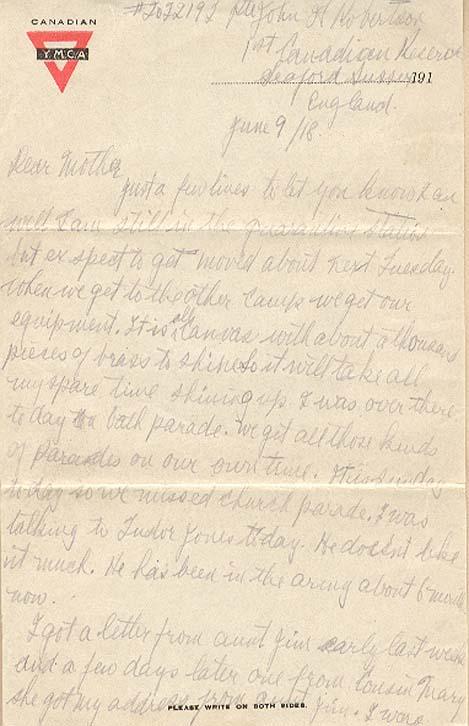 CANADIAN
YMCA
#2032192 Pte John H Robertson
1st Canadian Reserve
Seaford Sussex 191
England.
June 9/18.
Dear Mother
Just a few lines to let you know I am
well I am still in the quarantine
but expect to get moved about next Tuesday.
When we get to the other camp we get our
equipment. It is all canvas with about a thousand
pieces of brass to shine so it will take all
my spare time shining up. I was over there
to day bath parade. We get all those kinds
of parades on our own time. It is Sunday
to day so we missed church parade. I was
talking to Tudor Jones to day. He doesn't like
it much. He has been in the army about 6 months
now.
I got a letter from aunt Jim early last week
and a few days later one from Cousin Mary
she got my address from aunt Jim. I was
PLEASE WRITE ON BOTH SIDES.